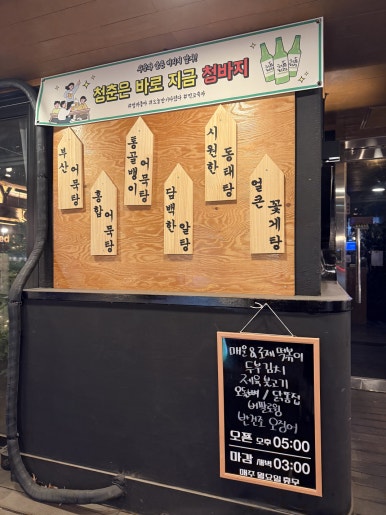 청춘은 바로 지금 청바지
부산 어묵탕
홍합 어묵탕
통골뱅이 어묵탕
담백한 알탕
시원한 동태탕
얼큰 꽃게탕
매운&로제 떡볶이
두부김치
제육 불고기
오돌뼈 / 닭똥집
버팔로윙
반건조 오징어
오픈 오후 05:00
마감 새벽 03:00
매주 월요일 휴무